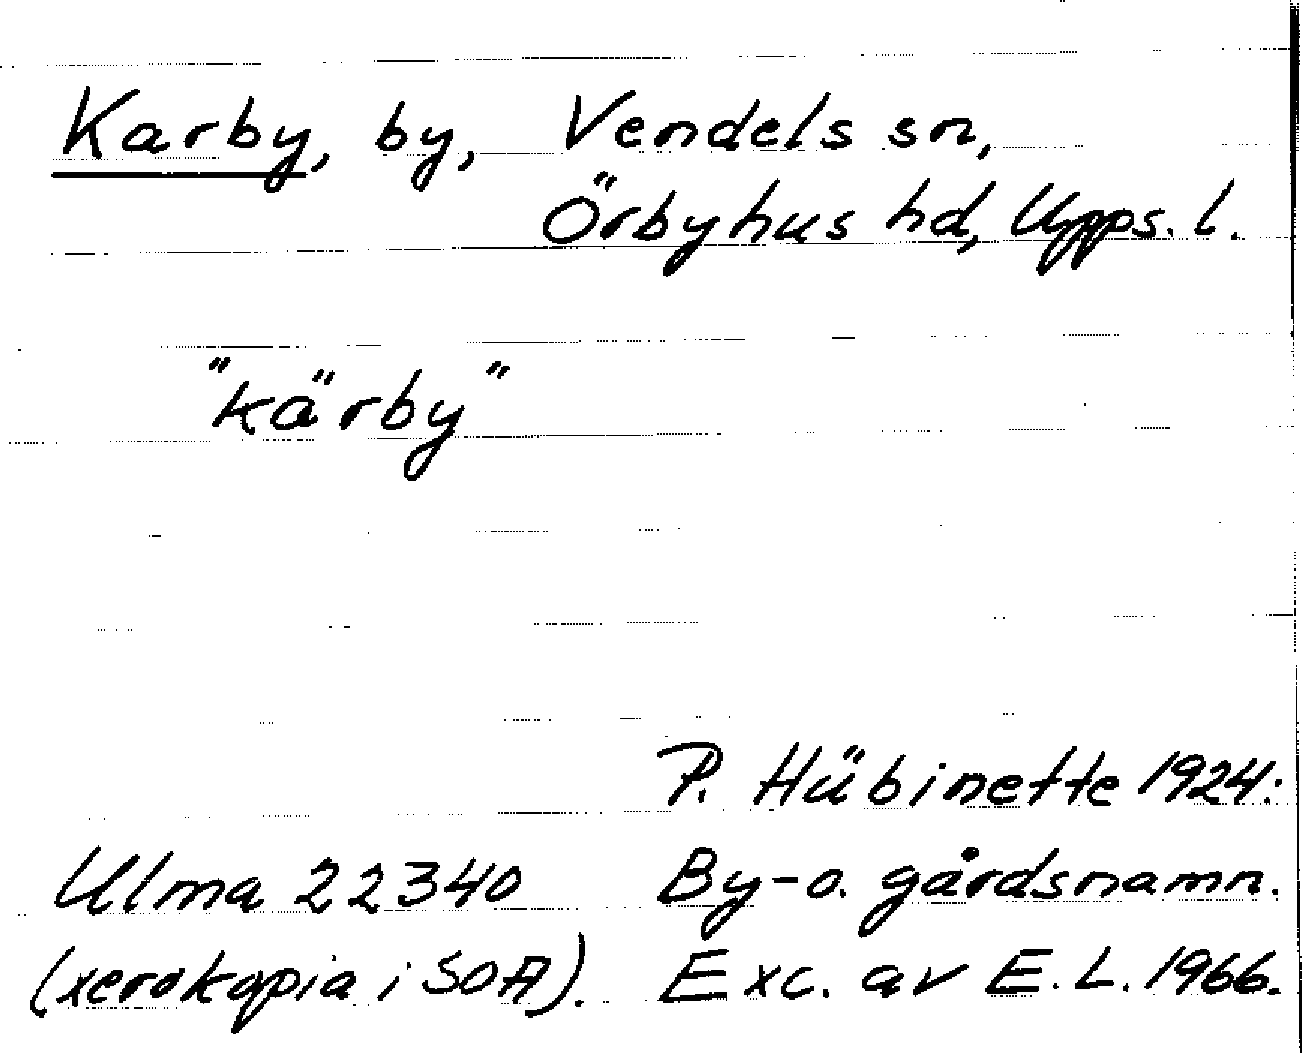 Karby, by, Vendels sn,
Örbyhus hd, Upps. l.
"kärby"
P. Hübinette 1924:
Ulma 22340 By- o. gårdsnamn.
(xerokopia i SOA). Exc. av E. L. 1966.